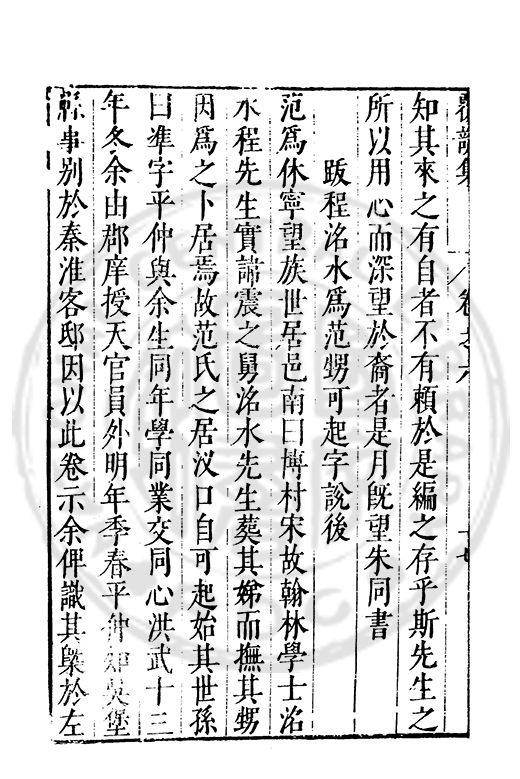 覆瓿集 卷之六
知其來之有自者不有賴於是編之存乎斯先生之
所以用心而深望於裔者是月既望朱同書
跋程洺水爲范甥可起字說後
范爲休寧望族世居邑南曰博村宋故翰林學士洺
水程先生實諱震之舅洺水先生葬其娣而撫其甥
因爲之卜居焉故范氏之居汊口自可起始其世孫
曰準字平仲與余生同年學同業交同心洪武十三
年冬余由郡庠授天官員外明年季春平仲知吳堡
縣事別於秦淮客邸因以此卷示余俾識其槩於左